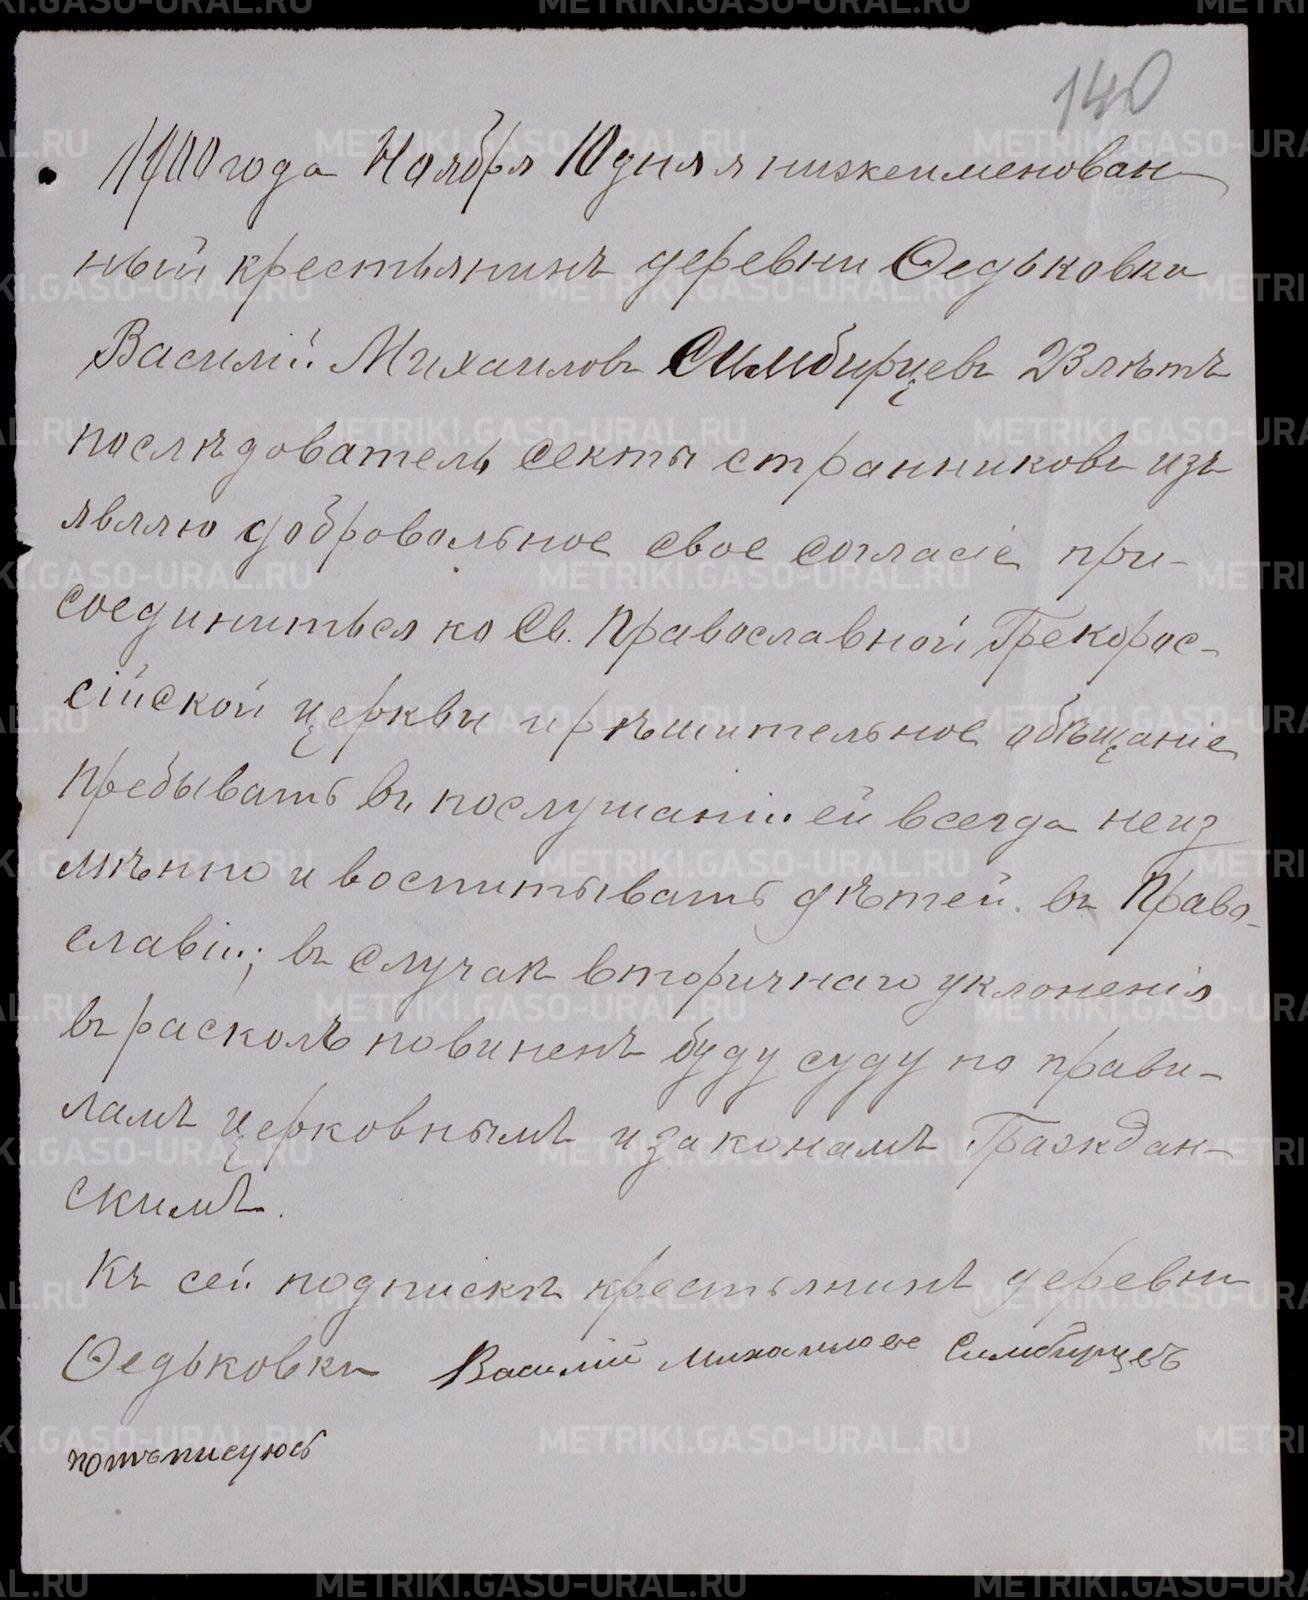 140
1900 года Ноября 10 дня я нижеименован
ный крестьянинъ деревни Ѳедьковки
Василій Михаиловъ Симбирцевъ 23 лѣтъ
послѣдователь секты странниковъ изъ
являю добровольное свое согласіе при-
соединиться ко Св. Православной Грекорос-
сійской церкви и рѣшительное обѣщаніе
пребывать въ послушаніи ей всегда неиз
мѣнно и воспитывать дѣтей въ Право-
славіи; въ случаѣ вторичнаго уклоненія
въ расколъ повиненъ буду суду по прави-
ламъ церковнымъ и законамъ Граждан-
скимъ.
Къ сей подпискѣ крестьянинъ деревни
Ѳедьковки Василій Михаиловъ Симбирцевъ
потъписуюсь
METRIKI.GASO-URAL.RU